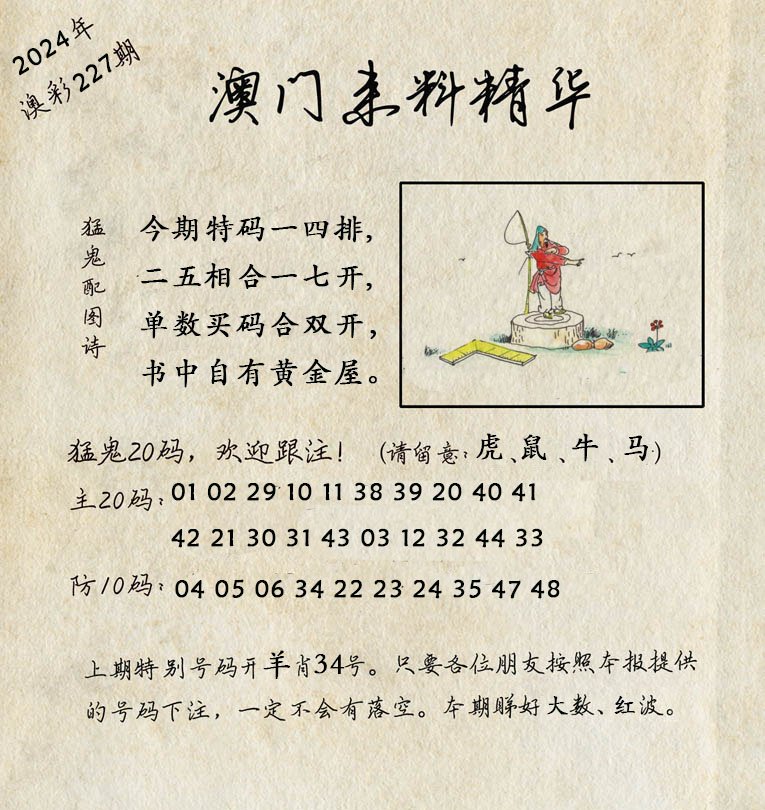 2024年
澳彩227期
澳门来料精华
猛鬼配图诗
今期特码一四排,
二五相合一七开,
单数买码合双开,
书中自有黄金屋。
猛鬼20码，欢迎跟注！(请留意:虎、鼠、牛、马)
主20码:01 02 29 10 11 38 39 20 40 41
42 21 30 31 43 03 12 32 44 33
防10码:04 05 06 34 22 23 24 35 47 48
上期特别号码开羊肖34号。只要各位朋友按照本报提供
的号码下注，一定不会有落空。本期睇好大数、红波。